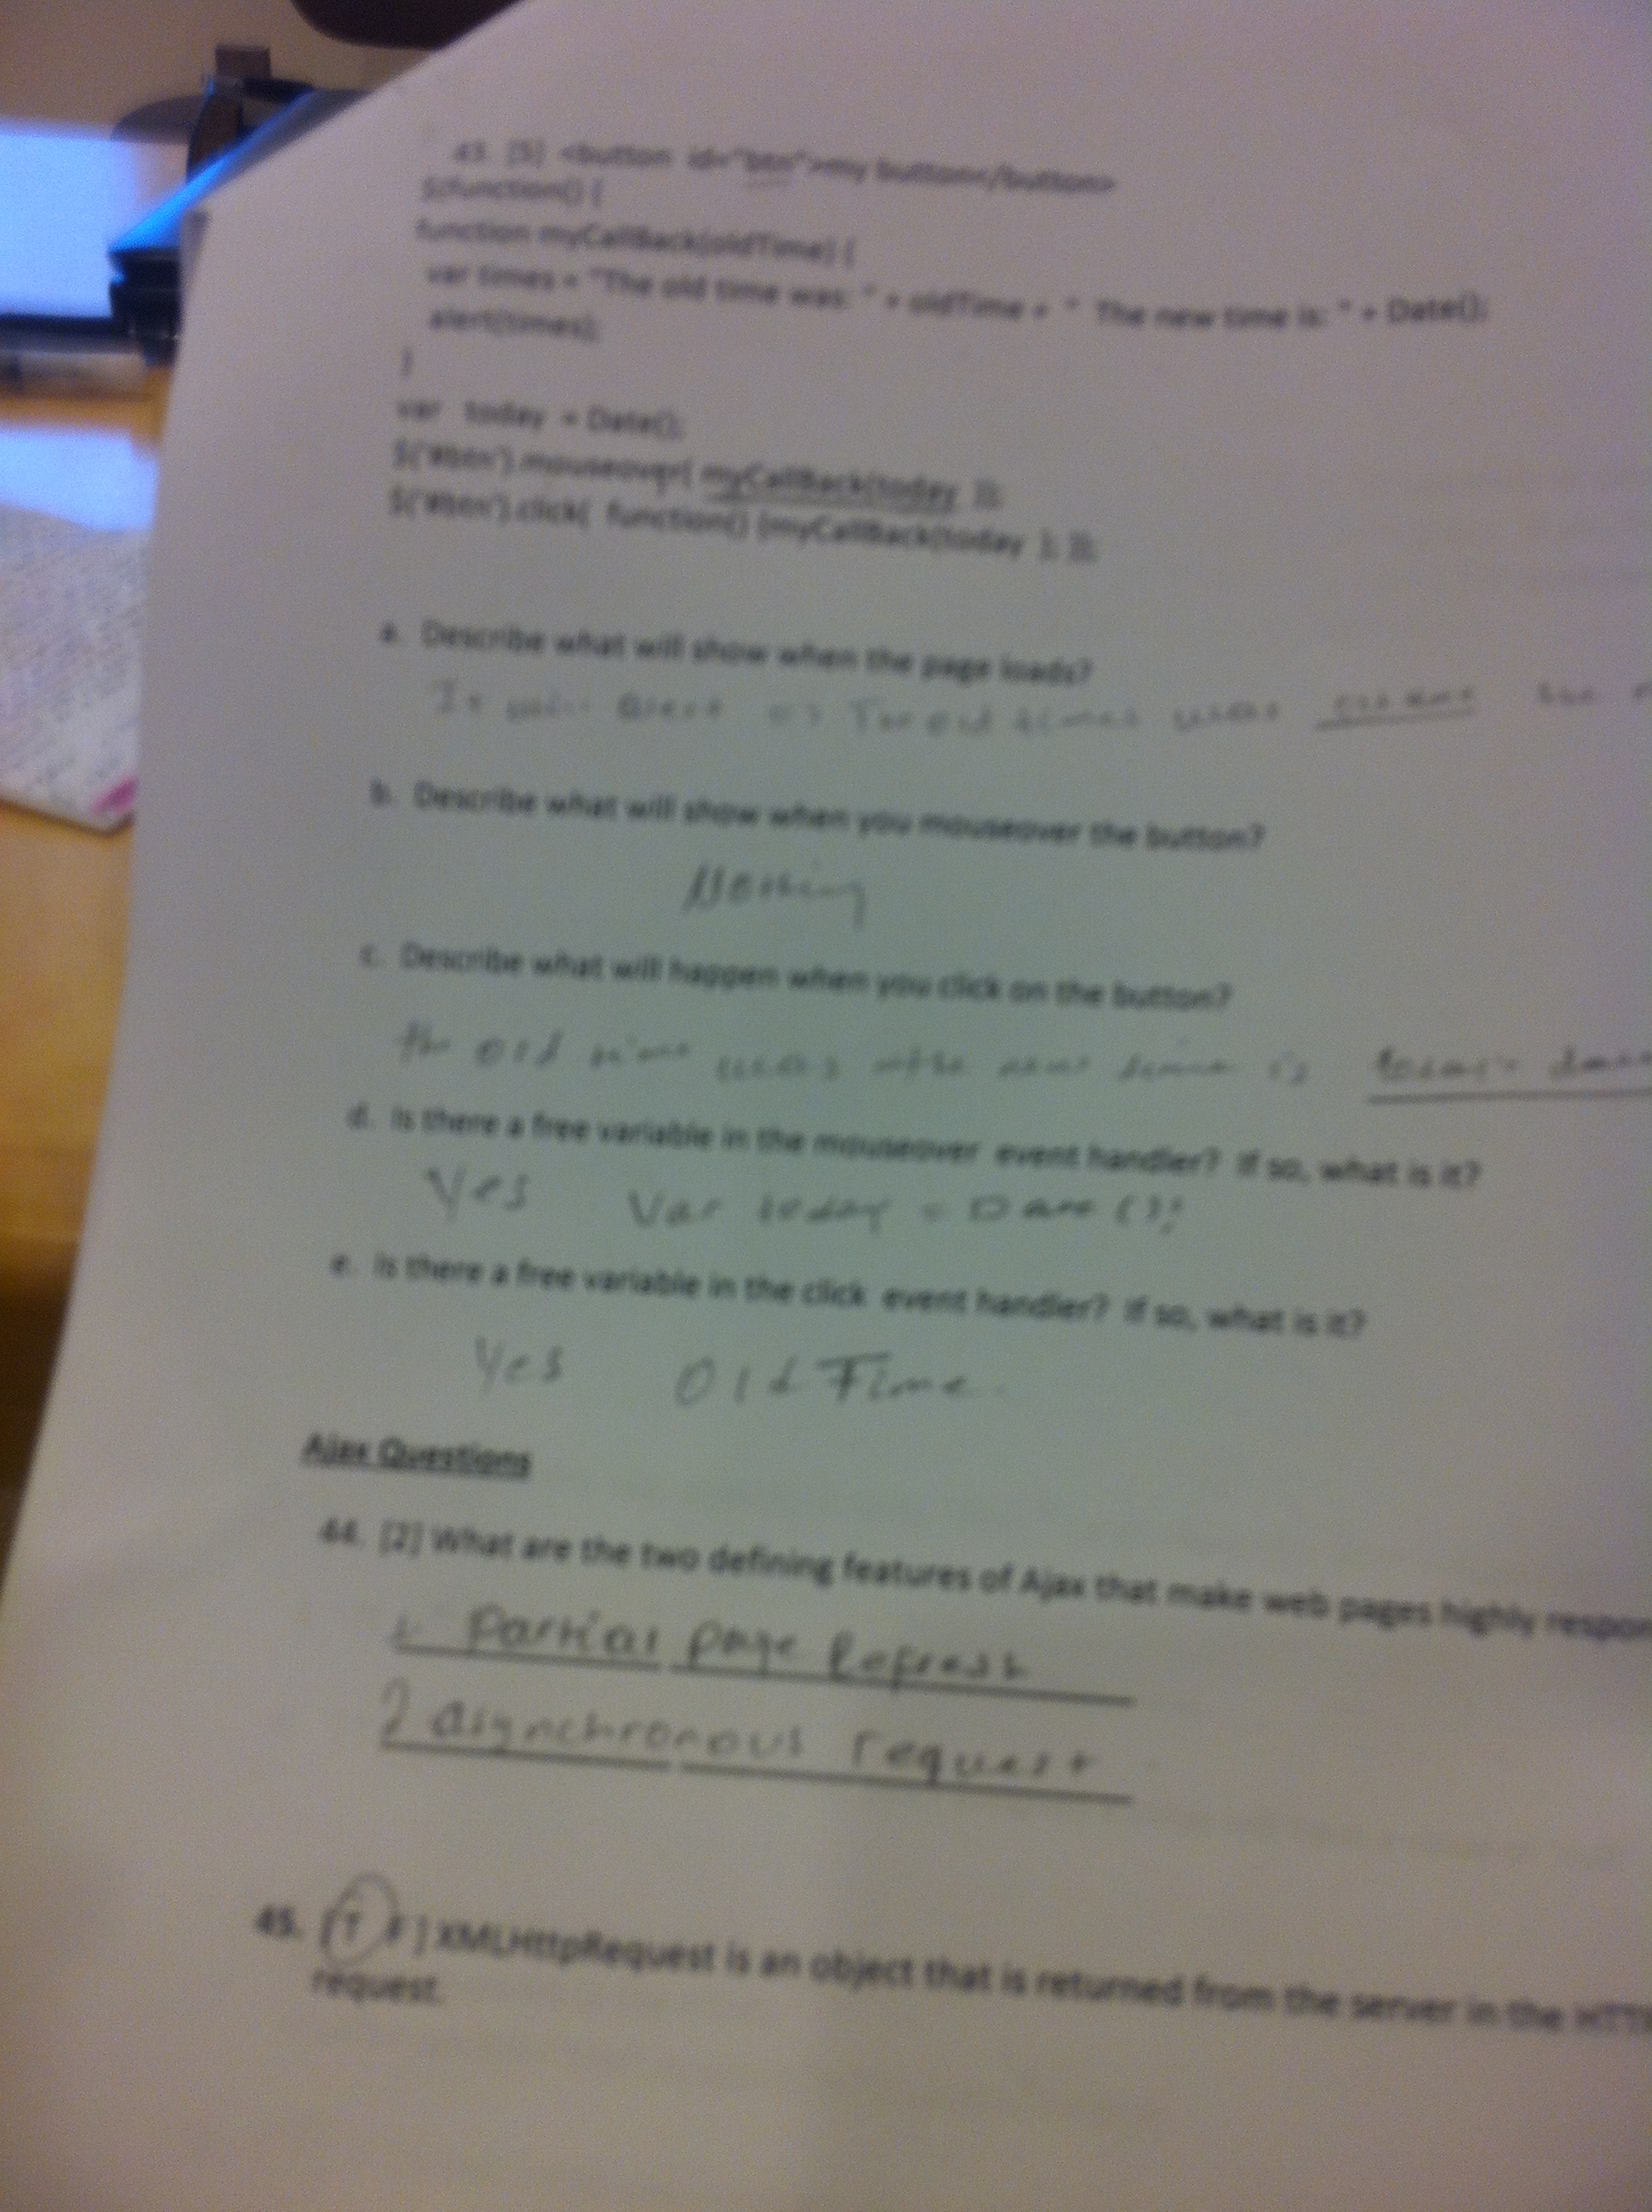 43. [5] <button id="btn">my button</button>
$(function() {
function myCallBack(oldTime) {
var times = "The old time was: " + oldTime + " The new time is: " + Date();
alert(times);
}
var today = Date();
$('#btn').mouseover( myCallBack(today ));
$('#btn').click( function() {myCallBack(today ); });
a. Describe what will show when the page loads?
It will alert The old times was the
b. Describe what will show when you mouseover the button?
Nothing
c. Describe what will happen when you click on the button?
the old time was the new time is
d. Is there a free variable in the mouseover event handler? If so, what is it?
Yes Var today = Date();
e. Is there a free variable in the click event handler? If so, what is it?
Yes Old Time
Ajax Questions
44. [2] What are the two defining features of Ajax that make web pages highly respon
1. Partial page Refresh
2 asynchronous request
45. [T F ] XMLHttpRequest is an object that is returned from the server in the HTTP
request.